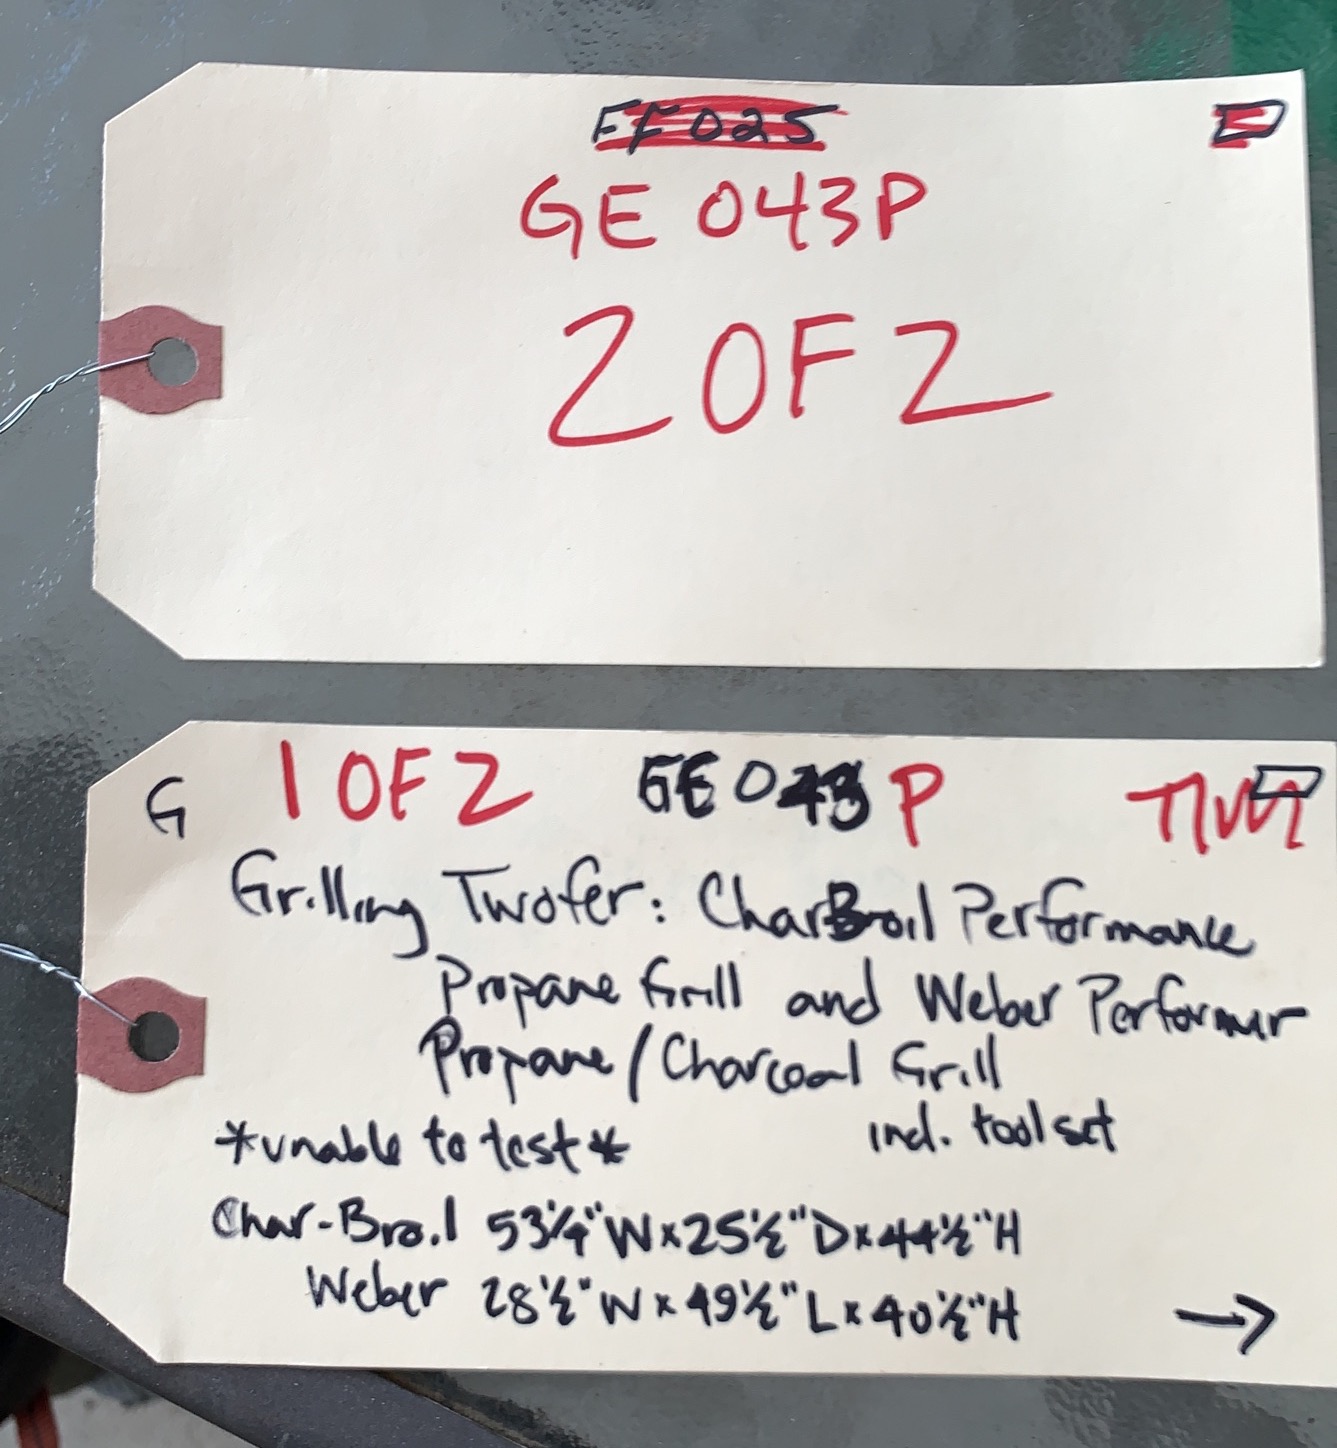 EF025
GE 043P
2 OF 2
G 1 OF 2 GE043 P
Grilling Twofer: CharBroil Performance
Propane Grill and Weber Performer
Propane/Charcoal Grill
incl. tool set
*unable to test*
Char-Broil 53¼"W x 25½"D x 44½"H
Weber 28½"W x 49½"L x 40½"H
→